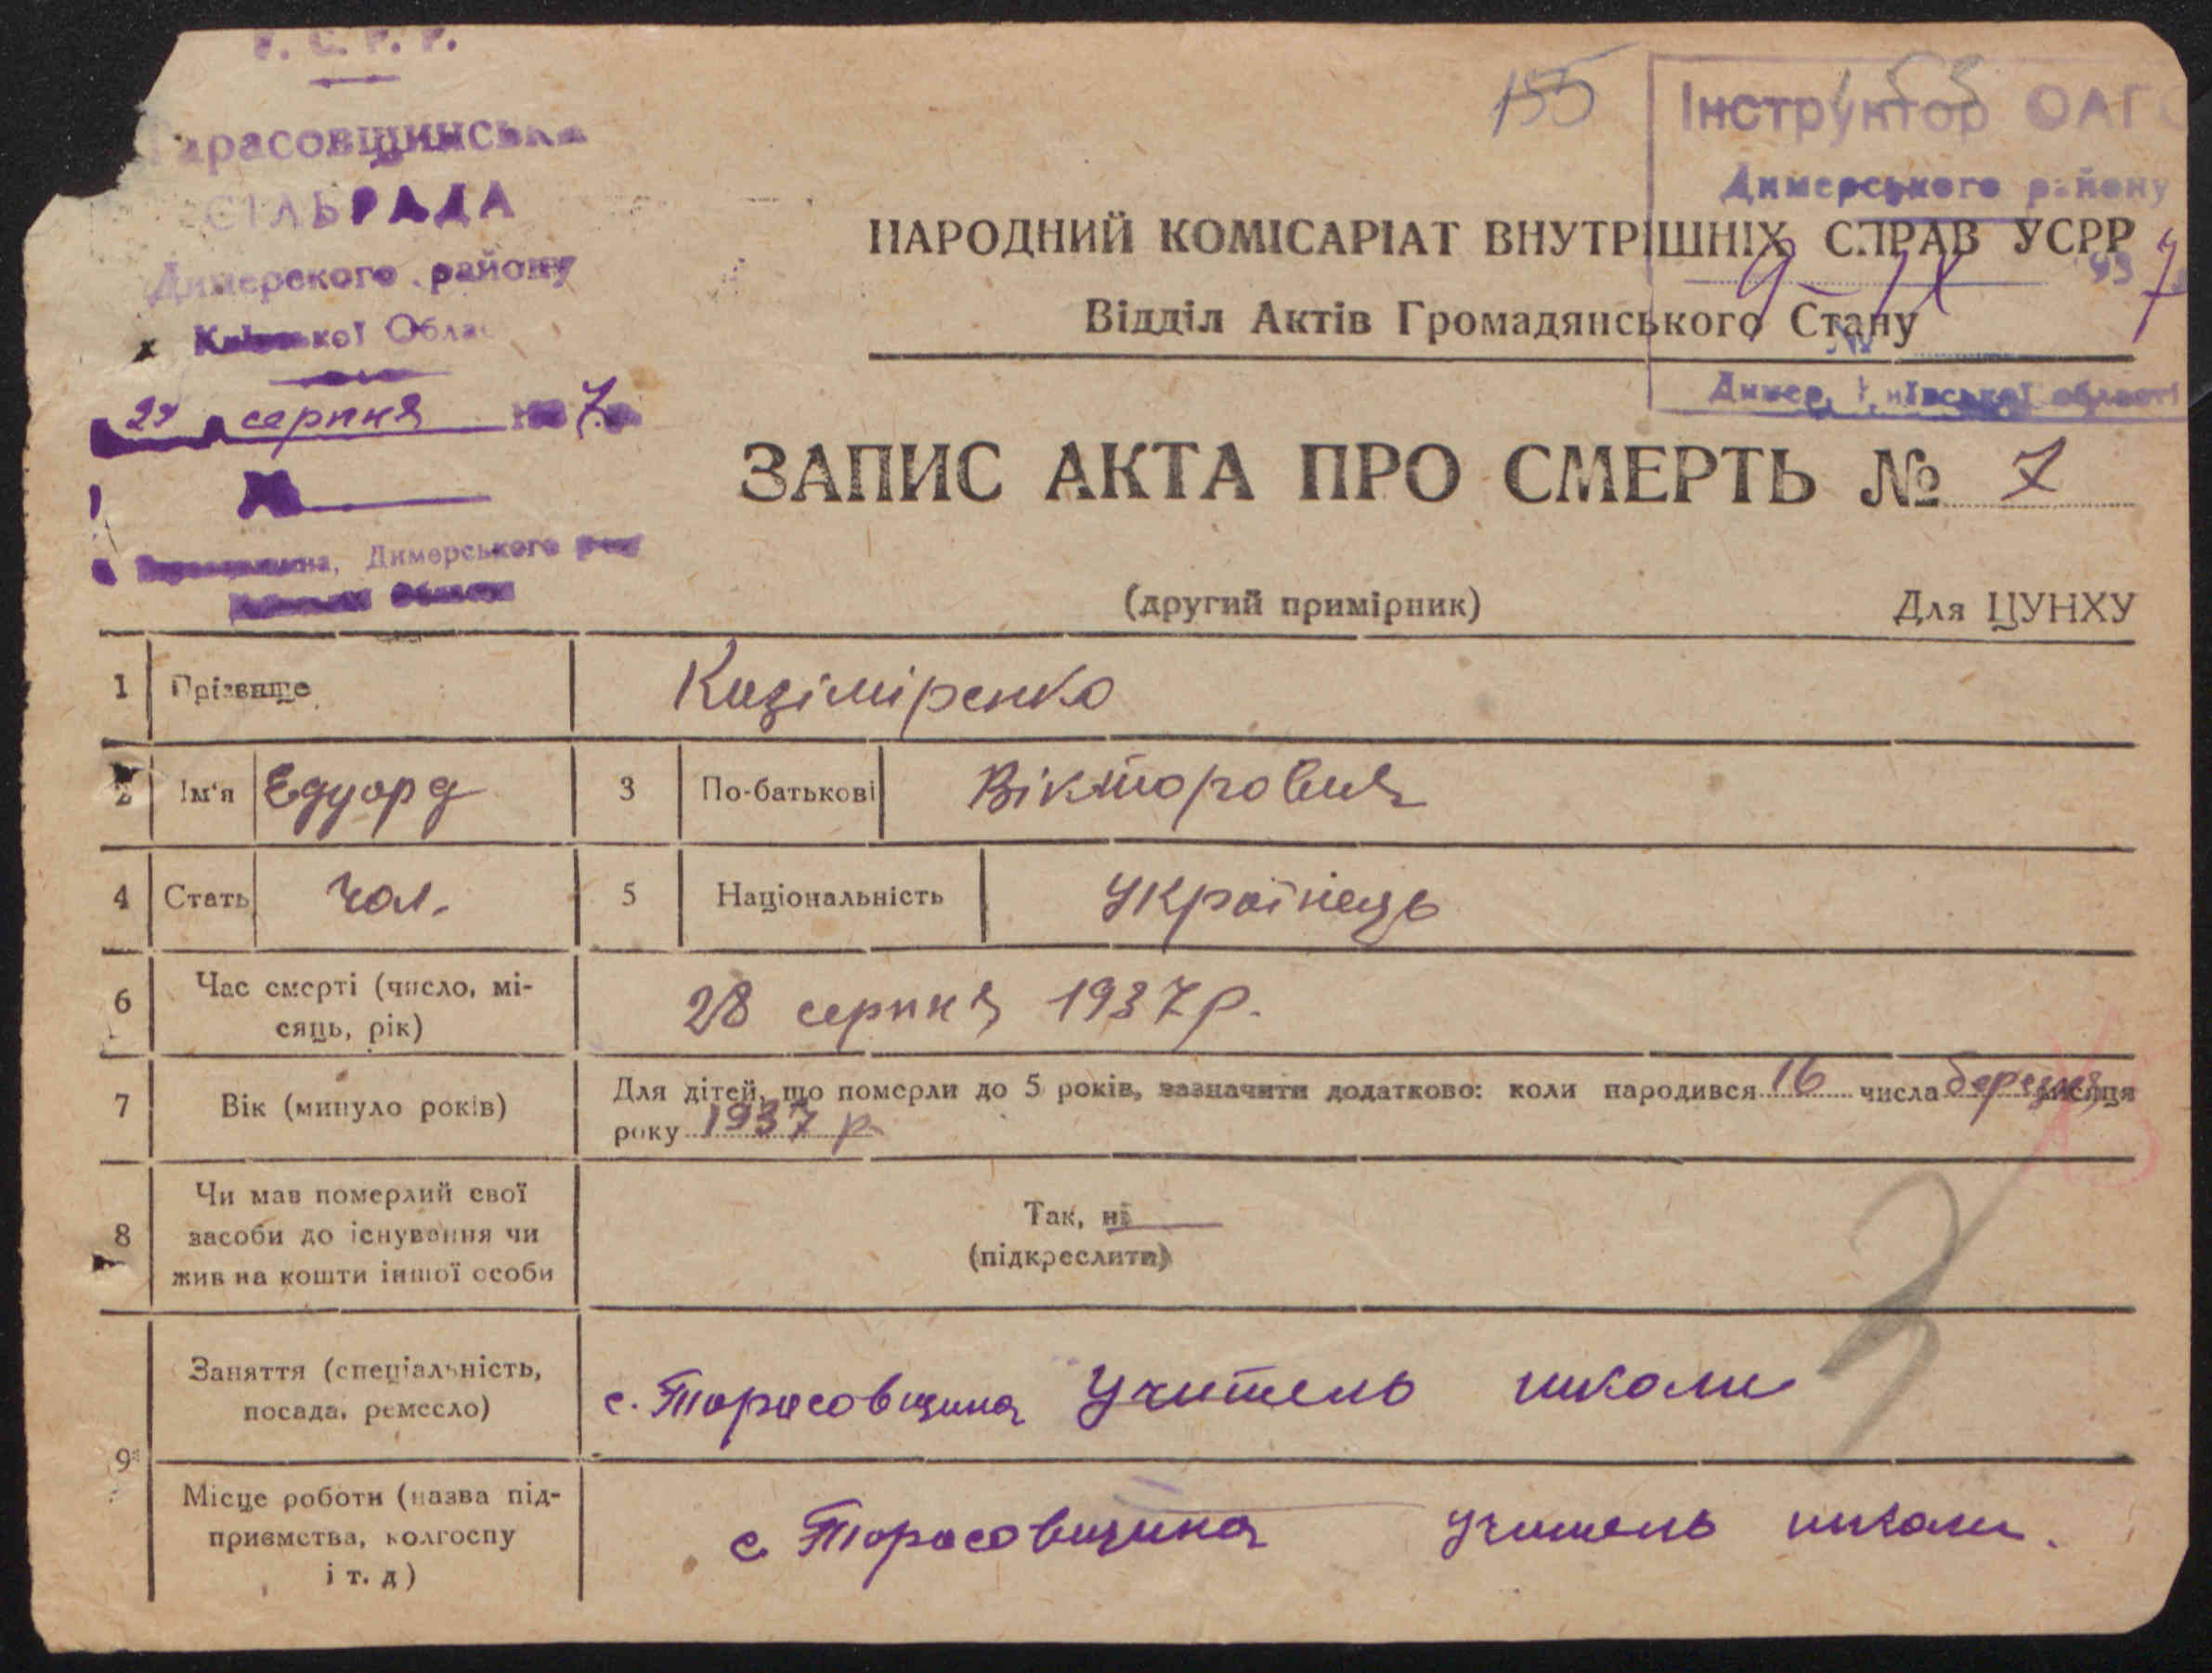 У. С. Р. Р.
Тарасовщинська
СІЛЬРАДА
Димерского району
Київської Облас
29 серпня 1937
Димерського
155
Інструктор ОАГС
Димерського району
9 IX 1937
№
Димер, Київської області
НАРОДНИЙ КОМІСАРІАТ ВНУТРІШНІХ СПРАВ УСРР
Відділ Актів Громадянського Стану
ЗАПИС АКТА ПРО СМЕРТЬ № 7
(другий примірник) Для ЦУНХУ
1 Прізвище Казіміренко
2 Ім'я Едуард 3 По-батькові Вікторович
4 Стать чол. 5 Національність Українець
6 Час смерті (число, мі-
сяць, рік) 28 серпня 1937 р.
7 Вік (минуло років) Для дітей, що померли до 5 років, зазначити додатково: коли народився 16 числа березня місяця
року 1937 р.
8 Чи мав померлий свої
засоби до існування чи
жив на кошти іншої особи
Так, ні
(підкреслити)
9 Заняття (спеціальність,
посада, ремесло) с. Тарасовщина Учитель школи
Місце роботи (назва під-
приємства, колгоспу
і т. д) с. Тарасовщина учитель школи.